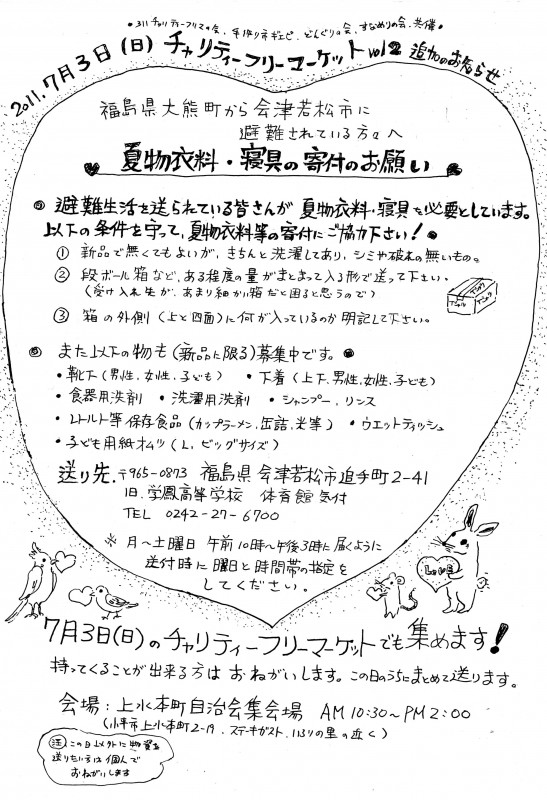 ●311チャリティーフリマの会、手作り市ギエピ、どんぐりの会、すなめりの会、共催●
2011.7月3日(日)チャリティーフリーマーケットvol2 追加のお知らせ
福島県大熊町から会津若松市に
避難されている方々へ
夏物衣料・寝具の寄付のお願い
避難生活を送られている皆さんが夏物衣料・寝具を必要としています。
以下の条件を守って、夏物衣料等の寄付にご協力下さい!
① 新品で無くてもよいが、きちんと洗濯してあり、シミや破れの無いもの。
② 段ボール箱など、ある程度の量がまとまって入る形で送って下さい。
(受け入れ先が、あまり細かい箱だと困ると思うので)
③ 箱の外側(上と四面)に何が入っているのか明記して下さい。
また以下の物も(新品に限る)募集中です。
・靴下(男性、女性、子ども) ・下着(上下、男性、女性、子ども)
・食器用洗剤 ・洗濯用洗剤 ・シャンプー、リンス
・レトルト等保存食品(カップラーメン、缶詰、米等) ・ウエットティッシュ
・子ども用紙オムツ(L、ビッグサイズ)
送り先.〒965-0873 福島県会津若松市追手町2-41
旧.学鳳高等学校 体育館気付
TEL 0242-27-6700
※ 月~土曜日 午前10時~午後3時に届くように
送付時に曜日と時間帯の指定を
してください。
LOVE
7月3日(日)のチャリティーフリーマーケットでも集めます!
持ってくることが出来る方はおねがいします。この日のうちにまとめて送ります。
会場:上水本町自治会集会場 AM10:30~PM2:00
(小平市上水本町2-19、ステーキガスト、いろりの里の近く)
注 この日以外に物資を
送りたい方は個人で
おねがいします